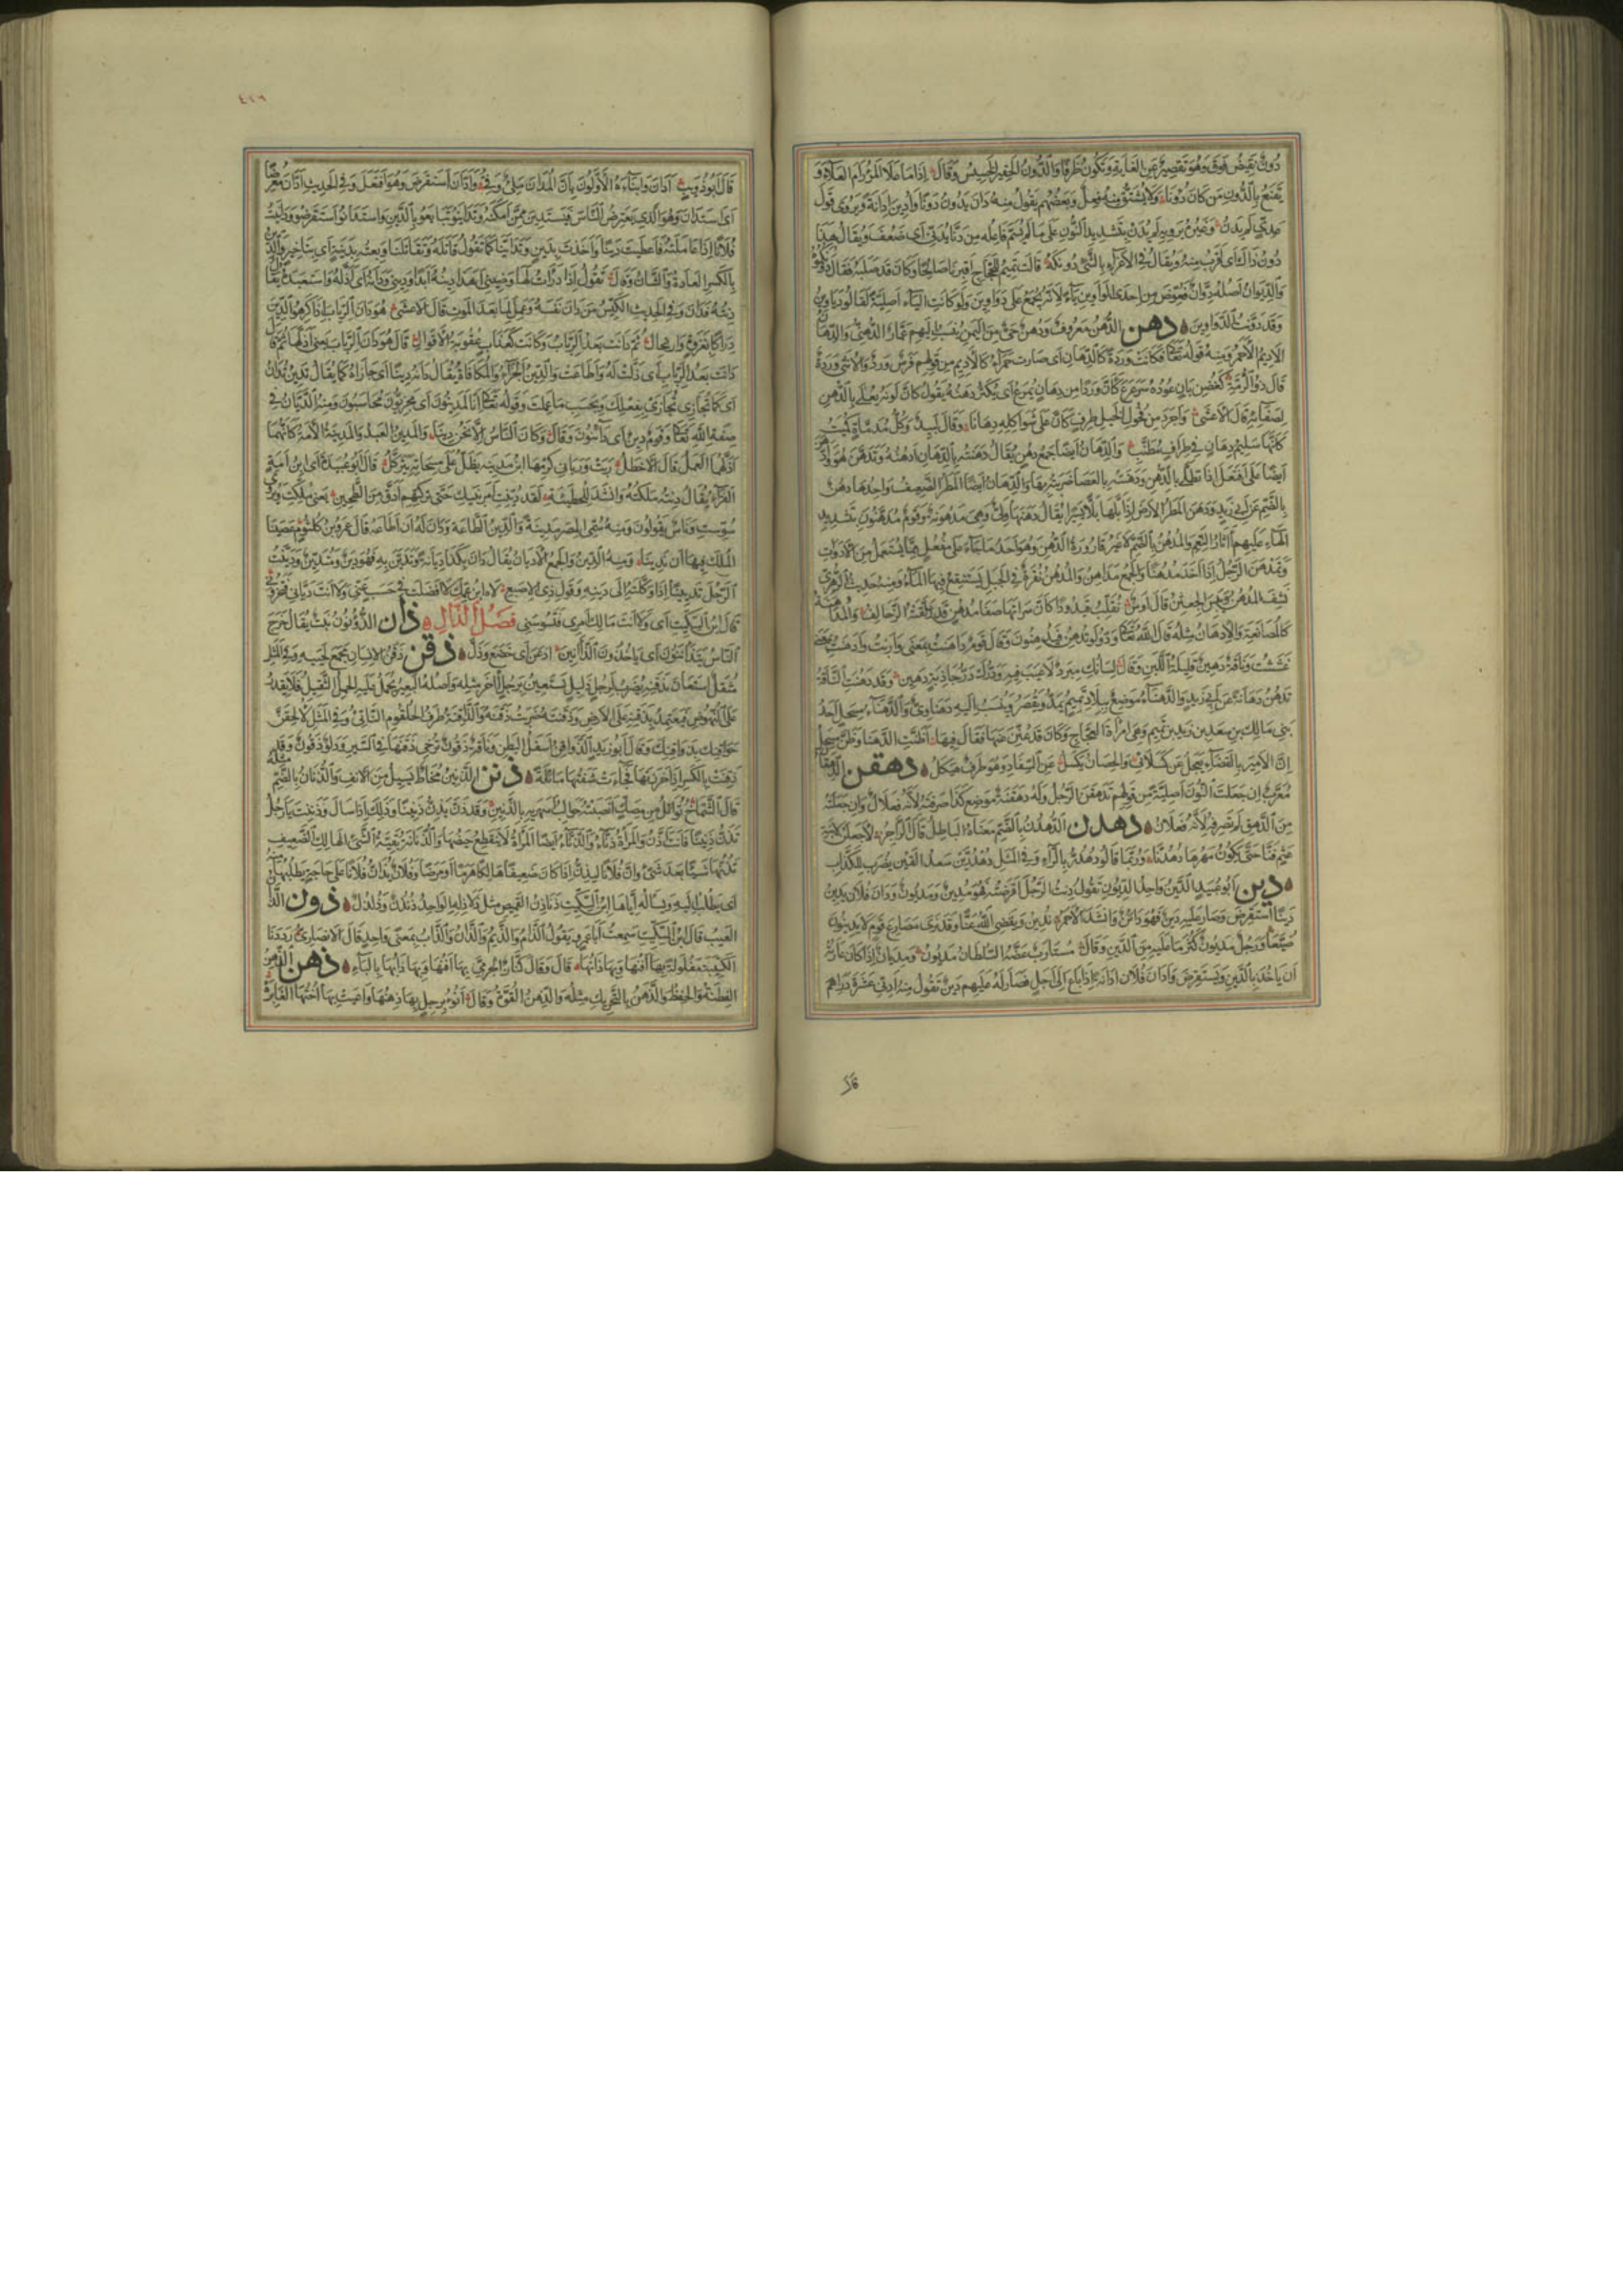 دُونَ نَقِيضُ فَوْقَ وَهُوَ تَقْصِيرٌ عَنِ الْغَايَةِ وَيَكُونُ ظَرْفًا وَالدُّونُ الْحَقِيرُ الْخَسِيسُ وَقَالَ إِذَا مَا عَلَا الْمَرْءُ رَامَ الْعَلَاءَ وَ
يَقْنَعُ بِالدُّونِ مَنْ كَانَ دُونَا وَلَا يُشْتَقُّ مِنْهُ فِعْلٌ وَبَعْضُهُمْ يَقُولُ مِنْهُ دَانَ يَدُونُ دَوْنًا وَأُدِينَ إِدَانَةً وَيُرْوَى قَوْلُ
عَدِيٍّ لَمْ يُدَنْ وَغَيْرُهُ يَرْوِيهِ لَمْ يُدَنَّ بِتَشْدِيدِ النُّونِ عَلَى مَا لَمْ يُسَمَّ فَاعِلُهُ مِنْ دَنَّا يُدَنِّي أَيْ ضَعُفَ وَيُقَالُ هَذَا
دُونَ ذَاكَ أَيْ أَقْرَبُ مِنْهُ وَيُقَالُ فِي الْإِغْرَاءِ بِالشَّيْءِ دُونَكَهُ قَالَتْ تَمِيمٌ لِلْحَجَّاجِ أَقْبِرْنَا صَالِحًا وَكَانَ قَدْ صَلَبَهُ فَقَالَ دُونَكُمُوهُ
وَالدِّيوَانُ أَصْلُهُ دِوَّانٌ فَعُوِّضَ مِنْ إِحْدَى الْوَاوَيْنِ يَاءٌ لِأَنَّهُ يُجْمَعُ عَلَى دَوَاوِينَ وَلَوْ كَانَتِ الْيَاءُ أَصْلِيَّةً لَقَالُوا دَيَاوِينُ
وَقَدْ دَوَّنْتُ الدَّوَاوِينَ دهن الدُّهْنُ مَعْرُوفٌ وَدُهْنٌ حَيٌّ مِنَ الْيَمَنِ يُنْسَبُ إِلَيْهِمْ عَمَّارٌ الدُّهْنِيُّ وَالدِّهَانُ
الْأَدِيمُ الْأَحْمَرُ وَمِنْهُ قَوْلُهُ تَعَالَى فَكَانَتْ وَرْدَةً كَالدِّهَانِ أَيْ صَارَتْ حَمْرَاءَ كَالْأَدِيمِ مِنْ قَوْلِهِمْ فَرَسٌ وَرْدٌ وَالْأُنْثَى وَرْدَةٌ
لِصَفَائِهِ قَالَ الْأَعْشَى وَأَجْرَدَ مِنْ فُحُولِ الْخَيْلِ طِرْفٍ كَأَنَّ عَلَى شَوَاكِلِهِ دِهَانَا وَقَالَ لَبِيدٌ وَكُلُّ مُدَمَّاةٍ كُمَيْتٍ
كَأَنَّهَا سَلِيمُ دِهَانٍ فِي طِرَافٍ مُطَنَّبِ وَالدِّهَانُ أَيْضًا جَمْعُ دُهْنٍ يُقَالُ دَهَنْتُهُ بِالدِّهَانِ أَدْهُنُهُ وَتَدَهَّنَ هُوَ وَادَّهَنَ
أَيْضًا عَلَى افْتَعَلَ إِذَا تَطَلَّى بِالدُّهْنِ وَدَهَنْتُهُ بِالْعَصَا ضَرَبْتُهُ بِهَا وَالدِّهَانُ أَيْضًا الْمَطَرُ الضَّعِيفُ وَاحِدُهَا دُهْنٌ
بِالضَّمِّ عَنْ أَبِي زَيْدٍ وَدَهَنَ الْمَطَرُ الْأَرْضَ إِذَا بَلَّهَا بَلًّا يَسِيرًا يُقَالُ دَهَنَهَا وَلِيٌّ وَهِيَ مَدْهُونَةٌ وَقَوْمٌ مُدَهَّنُونَ بِتَشْدِيدِ
الْهَاءِ عَلَيْهِمْ آثَارُ النَّعِيمِ وَالْمُدْهُنُ بِالضَّمِّ لَا غَيْرُ قَارُورَةُ الدُّهْنِ وَهُوَ أَحَدُ مَا جَاءَ عَلَى مُفْعُلٍ مِمَّا يُسْتَعْمَلُ مِنَ الْأَدَوَاتِ
وَتَمَدْهَنَ الرَّجُلُ إِذَا أَخَذَ مُدْهُنًا وَالْجَمْعُ مَدَاهِنُ وَالْمُدْهُنُ نُقْرَةٌ فِي الْجَبَلِ يَسْتَنْقِعُ فِيهَا الْمَاءُ وَمِنْهُ حَدِيثُ الزُّهْرِيِّ
غَشَشْتُ وَنَاقَةٌ دَهِينٌ قَلِيلَةُ اللَّبَنِ وَقَالَ لِسَانُكَ مِبْرَدٌ لَا عَيْبَ فِيهِ وَدَرُّكَ دَرُّ جَاذِبَةٍ دَهِينِ وَقَدْ دَهُنَتِ النَّاقَةُ
تَدْهُنُ دَهَانَةً عَنْ أَبِي زَيْدٍ وَالدَّهْنَاءُ مَوْضِعٌ بِبِلَادِ تَمِيمٍ يُمَدُّ وَيُقْصَرُ وَيُنْسَبُ إِلَيْهِ دَهْنَاوِيٌّ وَالدَّهْنَاءُ بِنْتُ مِسْحَلٍ أَحَدُ
بَنِي مَالِكِ بْنِ سَعْدِ بْنِ زَيْدِ بْنِ تَمِيمٍ وَهِيَ امْرَأَةُ الْعَجَّاجِ وَكَانَ قَدْ عُنِّنَ عَنْهَا فَقَالَ فِيهَا أَظَنَّتِ الدَّهْنَا وَظَنَّ مِسْحَلُ
إِنَّ الْأَمِيرَ بِالْقَضَاءِ يَعْجَلُ عَنْ كَسَلَاتِي وَالْحِصَانُ يَكْسَلُ عَنِ السِّفَادِ وَهُوَ طِرْفٌ هَيْكَلُ دهقن الدِّهْقَانُ
مُعَرَّبٌ إِنْ جَعَلْتَ النُّونَ أَصْلِيَّةً مِنْ قَوْلِهِمْ تَدَهْقَنَ الرَّجُلُ وَلَهُ دَهْقَنَةُ مَوْضِعِ كَذَا صَرَفْتَهُ لِأَنَّهُ فِعْلَالٌ وَإِنْ جَعَلْتَهُ
مِنَ الدَّهْقِ لَمْ تَصْرِفْهُ لِأَنَّهُ فِعْلَانُ دهدن الدُّهْدُنُّ بِالضَّمِّ مَعْنَاهُ الْبَاطِلُ قَالَ الرَّاجِزُ لَأَجْعَلَنْ لِابْنَةِ
عَثْمٍ فَنَّا حَتَّى يَكُونَ مَهْرُهَا دُهْدُنَّا وَرُبَّمَا قَالُوا دُهْدُرٌّ بِالرَّاءِ وَفِي الْمَثَلِ دُهْدُرَّيْنِ سَعْدُ الْقَيْنِ يُضْرَبُ لِلْكَذَّابِ
دين أَبُو عُبَيْدٍ الدَّيْنُ وَاحِدُ الدُّيُونِ تَقُولُ دِنْتُ الرَّجُلَ أَقْرَضْتُهُ فَهُوَ مَدِينٌ وَمَدْيُونٌ وَدَانَ فُلَانٌ يَدِينُ
دَيْنًا اسْتَقْرَضَ وَصَارَ عَلَيْهِ دَيْنٌ فَهُوَ دَائِنٌ وَأَنْشَدَ الْأَحْمَرُ نَدِينُ وَيَقْضِي اللَّهُ عَنَّا وَقَدْ نَرَى مَصَارِعَ قَوْمٍ لَا يَدِينُونَ
ضُيَّعَا وَرَجُلٌ مَدْيُونٌ كَثُرَ مَا عَلَيْهِ مِنَ الدَّيْنِ وَقَالَ مُسْتَأْرِبٍ عَضَّهُ السُّلْطَانُ مَدْيُونُ وَمِدْيَانٌ إِذَا كَانَ عَادَتُهُ
أَنْ يَأْخُذَ بِالدَّيْنِ وَيَسْتَقْرِضَ وَأَدَانَ فُلَانٌ إِدَانَةً إِذَا بَاعَ إِلَى أَجَلٍ فَصَارَ لَهُ عَلَيْهِمْ دَيْنٌ تَقُولُ مِنْهُ أَدِنِّي عَشَرَةَ دَرَاهِمَ
قال
٤٢٦
قَالَ أَبُو ذُؤَيْبٍ أَدَانَ وَأَنْبَأَهُ الْأَوَّلُونَ بِأَنَّ الْمُدَانَ مَلِيٌّ وَفِيُّ وَادَّانَ اسْتَقْرَضَ وَهُوَ افْتَعَلَ وَفِي الْحَدِيثِ ادَّانَ مُعْرِضًا
أَيِ اسْتَدَانَ وَهُوَ الَّذِي يَعْتَرِضُ النَّاسَ فَيَسْتَدِينُ مِمَّنْ أَمْكَنَهُ وَتَدَايَنُوا تَبَايَعُوا بِالدَّيْنِ وَاسْتَدَانُوا اسْتَقْرَضُوا وَدَايَنْتُ
فُلَانًا إِذَا عَامَلْتَهُ فَأَعْطَيْتَ دَيْنًا وَأَخَذْتَ بِدَيْنٍ وَتَدَايَنَّا كَمَا تَقُولُ قَاتَلَهُ وَتَقَاتَلْنَا وَبِعْتُهُ بِدِينَةٍ أَيْ بِتَأْخِيرٍ وَالدِّينُ
بِالْكَسْرِ الْعَادَةُ وَالشَّأْنُ وَقَالَ تَقُولُ إِذَا دَرَأْتُ لَهَا وَضِينِي أَهَذَا دِينُهُ أَبَدًا وَدِينِي وَدَانَهُ أَيْ أَذَلَّهُ وَاسْتَعْبَدَهُ يُقَالُ
دِنْتُهُ فَدَانَ وَفِي الْحَدِيثِ الْكَيِّسُ مَنْ دَانَ نَفْسَهُ وَعَمِلَ لِمَا بَعْدَ الْمَوْتِ قَالَ الْأَعْشَى هُوَ دَانَ الرِّبَابَ إِذْ كَرِهُوا الدِّينَ
دِرَاكًا بِغَزْوَةٍ وَارْتِحَالِ ثُمَّ دَانَتْ بَعْدُ الرِّبَابُ وَكَانَتْ كَعَذَابٍ عُقُوبَةُ الْأَقْوَالِ قَالَ هُوَ دَانَ الرِّبَابَ يَعْنِي أَذَلَّهَا ثُمَّ قَالَ
دَانَتْ بَعْدُ الرِّبَابُ أَيْ ذَلَّتْ لَهُ وَأَطَاعَتْ وَالدِّينُ الْجَزَاءُ وَالْمُكَافَأَةُ يُقَالُ دَانَهُ دِينًا أَيْ جَازَاهُ كَمَا يُقَالُ تَدِينُ تُدَانُ
أَيْ كَمَا تُجَازِي تُجَازَى بِفِعْلِكَ وَبِحَسَبِ مَا عَمِلْتَ وَقَوْلُهُ تَعَالَى أَئِنَّا لَمَدِينُونَ أَيْ مَجْزِيُّونَ مُحَاسَبُونَ وَمِنْهُ الدَّيَّانُ فِي
صِفَةِ اللَّهِ تَعَالَى وَقَوْمٌ دِينٌ أَيْ دَائِنُونَ وَقَالَ وَكَانَ النَّاسُ إِلَّا نَحْنُ دِينَا وَالْمَدِينُ الْعَبْدُ وَالْمَدِينَةُ الْأَمَةُ كَأَنَّهُمَا
أَذَلَّهُمَا الْعَمَلُ قَالَ الْأَخْطَلُ رَبَتْ وَرَبَا فِي كَرْمِهَا ابْنُ مَدِينَةٍ يَظَلُّ عَلَى مِسْحَاتِهِ يَتَرَكَّلُ قَالَ أَبُو عُبَيْدَةَ أَيِ ابْنُ أَمَةٍ
الْفَرَّاءُ يُقَالُ دِنْتُهُ مَلَكْتُهُ وَأَنْشَدَ لِلْحُطَيْئَةِ لَقَدْ دُيِّنْتِ أَمْرَ بَنِيكِ حَتَّى تَرَكْتِهِمْ أَدَقَّ مِنَ الطَّحِينِ يَعْنِي مُلِّكْتِ
سُوِّسْتِ وَنَاسٌ يَقُولُونَ وَمِنْهُ سُمِّيَ الْمِصْرُ مَدِينَةً وَالدِّينُ الطَّاعَةُ وَدَانَ لَهُ أَيْ أَطَاعَهُ قَالَ عَمْرُو بْنُ كُلْثُومٍ عَصَيْنَا
الْمَلْكَ فِيهَا أَنْ نَدِينَا وَمِنْهُ الدِّينُ وَالْجَمْعُ الْأَدْيَانُ يُقَالُ دَانَ بِكَذَا دِيَانَةً وَتَدَيَّنَ بِهِ فَهُوَ دَيِّنٌ وَمُتَدَيِّنٌ وَدَيَّنْتُ
الرَّجُلَ تَدْيِينًا إِذَا وَكَلْتَهُ إِلَى دِينِهِ وَقَوْلُ ذِي الْإِصْبَعِ لَاهِ ابْنُ عَمِّكَ لَا أَفْضَلْتَ فِي حَسَبٍ عَنِّي وَلَا أَنْتَ دَيَّانِي فَتَخْزُونِي
قَالَ ابْنُ السِّكِّيتِ أَيْ وَلَا أَنْتَ مَالِكُ أَمْرِي فَتَسُوسَنِي فَصْلُ الذَّالِ ذأن الذُّؤْنُونُ نَبْتٌ يُقَالُ خَرَجَ
النَّاسُ يَتَذَأْنَنُونَ أَيْ يَأْخُذُونَ الذَّآنِينَ أَذْعَنَ أَيْ خَضَعَ وَذَلَّ ذقن ذَقَنُ الْإِنْسَانِ مَجْمَعُ لَحْيَيْهِ وَفِي الْمَثَلِ
مُثْقَلٌ اسْتَعَانَ بِذَقَنِهِ يُضْرَبُ لِرَجُلٍ ذَلِيلٍ يَسْتَعِينُ بِرَجُلٍ آخَرَ مِثْلِهِ وَأَصْلُهُ الْبَعِيرُ يُحْمَلُ عَلَيْهِ الْحِمْلُ الثَّقِيلُ فَلَا يَقْدِرُ
عَلَى النُّهُوضِ فَيَعْتَمِدُ بِذَقَنِهِ عَلَى الْأَرْضِ وَذَقَنْتُهُ ضَرَبْتُ ذَقَنَهُ وَالذَّاقِنَةُ طَرَفُ الْحُلْقُومِ النَّاتِئُ وَفِي الْمَثَلِ لَأُلْحِقَنَّ
حَوَاقِنَكَ بِذَوَاقِنِكَ وَقَالَ أَبُو زَيْدٍ الذَّوَاقِنُ أَسْفَلُ الْبَطْنِ وَنَاقَةٌ ذَقُونٌ تُرْخِي ذَقَنَهَا فِي السَّيْرِ وَدَلْوٌ ذَقُونٌ وَقَدْ
ذَقِنَتْ بِالْكَسْرِ إِذَا خَرَزْتَهَا فَجَاءَتْ شَفَتُهَا مَائِلَةً ذنن الذَّنِينُ مُخَاطٌ يَسِيلُ مِنَ الْأَنْفِ وَالذُّنَانُ بِالضَّمِّ مِثْلُهُ
قَالَ الشَّمَّاخُ تُوَائِلُ مِنْ مِصَكٍّ أَنْصَبَتْهُ حَوَالِبُ أَسْهَرَيْهِ بِالذَّنِينِ وَقَدْ ذَنَّ يَذِنُّ ذَنِينًا وَذَلِكَ إِذَا سَالَ وَذَنِنْتَ يَا رَجُلُ
تَذَنُّ ذَنَنًا فَأَنْتَ أَذَنُّ وَالْمَرْأَةُ ذَنَّاءُ وَالذَّنَّاءُ أَيْضًا الْمَرْأَةُ لَا يَنْقَطِعُ حَيْضُهَا وَالذُّنَانَةُ بَقِيَّةُ الشَّيْءِ الْهَالِكِ الضَّعِيفِ
تَذُنُّهَا شَيْئًا بَعْدَ شَيْءٍ وَإِنَّ فُلَانًا لَيَذِنُّ إِذَا كَانَ ضَعِيفًا هَالِكًا هَرَمًا أَوْ مَرَضًا وَفُلَانٌ يُذَانُّ فُلَانًا عَلَى حَاجَةٍ يَطْلُبُهَا
أَيْ يَطْلُبُ إِلَيْهِ وَيَسْأَلُهُ إِيَّاهَا ابْنُ السِّكِّيتِ ذَنَاذِنُ الْقَمِيصِ مِثْلُ ذَلَاذِلِهِ الْوَاحِدُ ذُنْذُنٌ وَذُلْذُلٌ ذون الذَّانُ
الْعَيْبُ قَالَ ابْنُ السِّكِّيتِ سَمِعْتُ أَبَا عَمْرٍو يَقُولُ الذَّامُ وَالذَّيْمُ وَالذَّانُ وَالذَّابُ بِمَعْنًى وَاحِدٍ قَالَ الْأَنْصَارِيُّ رَدَدْنَا
الْكَتِيبَةَ مَفْلُولَةً بِهَا أَفْنُهَا وَبِهَا ذَانُهَا قَالَ وَقَالَ كَنَّازٌ الْجَرْمِيُّ بِهَا أَفْنُهَا وَبِهَا ذَابُهَا بِالْبَاءِ ذهن الذِّهْنُ
الْفِطْنَةُ وَالْحِفْظُ وَالذَّهَنُ بِالتَّحْرِيكِ مِثْلُهُ وَالذِّهْنُ الْقُوَّةُ وَقَالَ أَنُوءُ بِرِجْلٍ بِهَا ذِهْنُهَا وَأَعْيَتْ بِهَا أُخْتُهَا الْغَابِرَهْ